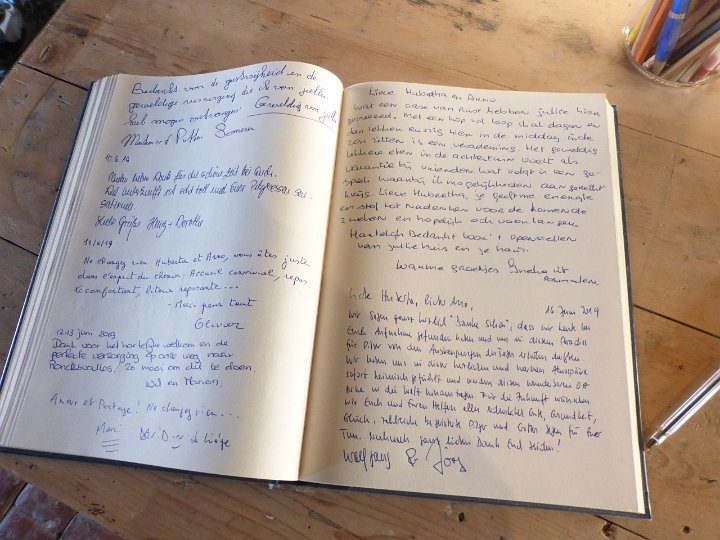 Bedankt voor de gastvrijheid en de
geweldige verzorging die ik van jullie
heb mogen ontvangen! Geweldig van jullie
10.6.19
Vielen lieben Dank für die schöne Zeit bei Euch.
Die Unterkunft ist echt toll und hier Pilgeressen
Liebe Grüße + Dorothe
11/6/19
Ne changez rien Huberta et Arno, vous êtes juste
dans l'esprit du chemin. Accueil convivial, repas
réconfortant, literie reposante...
- Merci pour tout
Olivier
12-13 juni 2019
Dank voor het hartelijk welkom en de
perfecte verzorging op onze weg naar
Roncesvalles. Zo mooi om dit te doen.
Wil en Marion.
Amour et Partage. Ne changez rien...
Merci de Liège
Lieve Hubertha en Arno
Wat een oase van rust hebben jullie hier
gecreëerd. Met een hop vol loop ik al dagen en
dan lekker rustig hier in de middag in de
zon zitten is een verademing. Het geweldig
lekkere eten in de achtertuin voelt als
vakantie bij vrienden wat volgt in een ge-
sprek waarbij ik mogelijkheden aangereikt
krijg. Lieve Hubertha, je geeft me energie
en stof tot nadenken voor de komende
2 weken en hopelijk ook voor langer.
Hartelijk Bedankt voor 't openstellen
van jullie huis en je hart.
Warme groetjes uit
16 Juni 2019
Liebe Huberta, lieber Arno,
wir sagen ganz herzlich "Danke Schön", dass wir heute bei
Euch Aufnahme gefunden haben und uns in diesem Paradies
für Pilger von den Anstrengungen des Tages erholen durften
Wir haben uns in dieser herzlichen und warmen Atmosphäre
sofort heimisch gefühlt und werden diesen wunderbaren Ort
gerne in die Welt hinaus tragen. Für die Zukunft wünschen
wir Euch und Euren Helfern alles erdenklich Gute, Gesundheit,
Glück, zahlreiche begeisterte Pilger und Gottes Segen für Euer
Tun. Nochmals ganz lieben Dank Euch beiden!
Wolfgang & Jörg